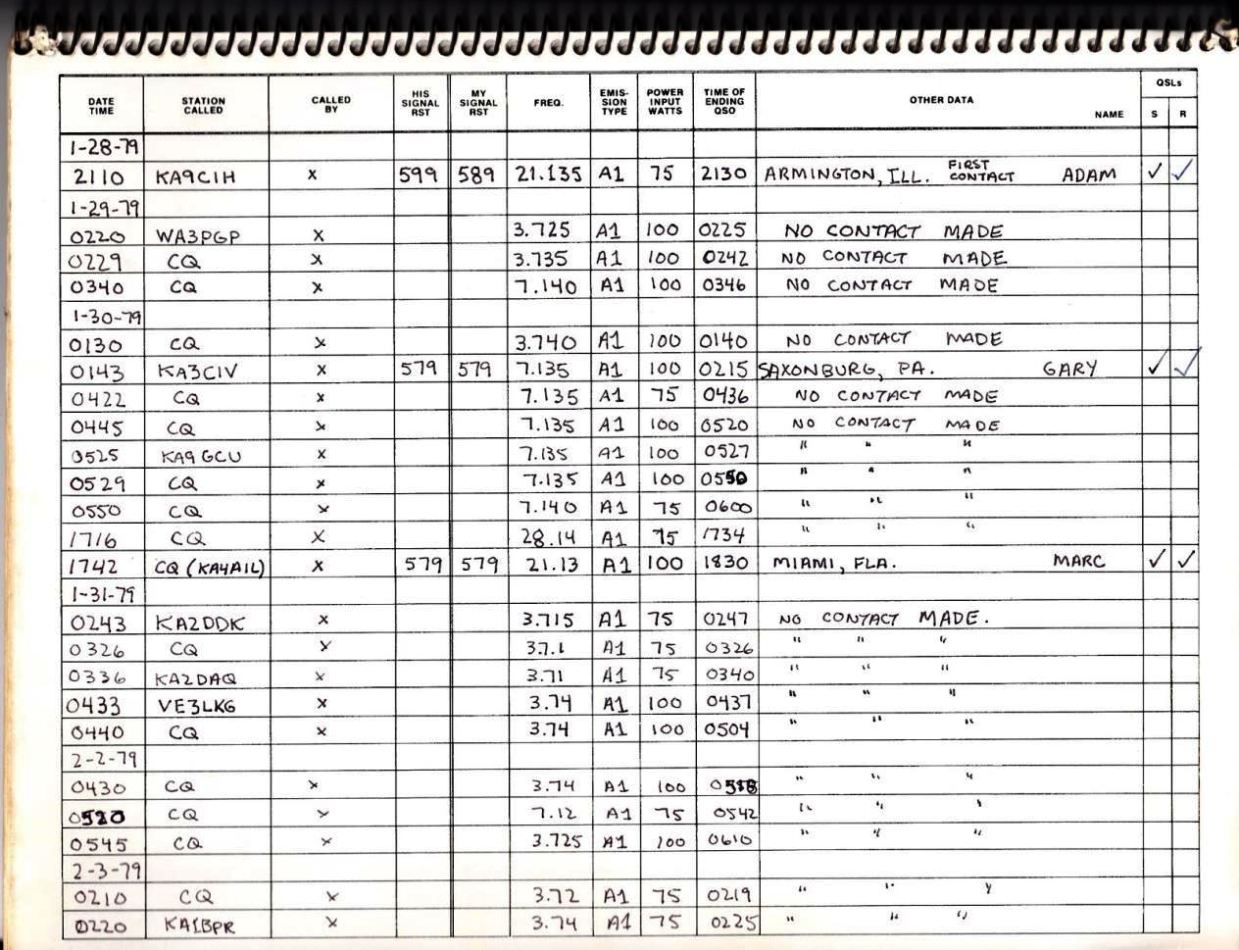 DATE TIME STATION CALLED CALLED BY HIS SIGNAL RST MY SIGNAL RST FREQ. EMIS- SION TYPE POWER INPUT WATTS TIME OF ENDING QSO OTHER DATA NAME QSLs S R
1-28-79
2110 KA9CIH x 599 589 21.135 A1 75 2130 ARMINGTON, ILL. FIRST CONTACT ADAM ✓ ✓
1-29-79
0220 WA3PGP x 3.725 A1 100 0225 NO CONTACT MADE
0229 CQ x 3.735 A1 100 0242 NO CONTACT MADE
0340 CQ x 7.140 A1 100 0346 NO CONTACT MADE
1-30-79
0130 CQ x 3.740 A1 100 0140 NO CONTACT MADE
0143 KA3CIV x 579 579 7.135 A1 100 0215 SAXONBURG, PA. GARY ✓ ✓
0422 CQ x 7.135 A1 75 0436 NO CONTACT MADE
0445 CQ x 7.135 A1 100 0520 NO CONTACT MADE
0525 KA9GCU x 7.135 A1 100 0527 " " "
0529 CQ x 7.135 A1 100 0550 " " "
0550 CQ x 7.140 A1 75 0600 " " "
1716 CQ x 28.14 A1 75 1734 " " "
1742 CQ (KA4AIL) x 579 579 21.13 A1 100 1830 MIAMI, FLA. MARC ✓ ✓
1-31-79
0243 KA2DDK x 3.715 A1 75 0247 NO CONTACT MADE.
0326 CQ x 3.7.1 A1 75 0326 " " "
0336 KA2DAQ x 3.71 A1 75 0340 " " "
0433 VE3LKG x 3.74 A1 100 0437 " " "
0440 CQ x 3.74 A1 100 0504 " " "
2-2-79
0430 CQ x 3.74 A1 100 " " "
0520 CQ x 7.12 A1 75 0542 " " "
0545 CQ x 3.725 A1 100 0610 " " "
2-3-79
0210 CQ x 3.72 A1 75 0219 " " "
0220 KA1BPR x 3.74 A1 75 0225 " " "